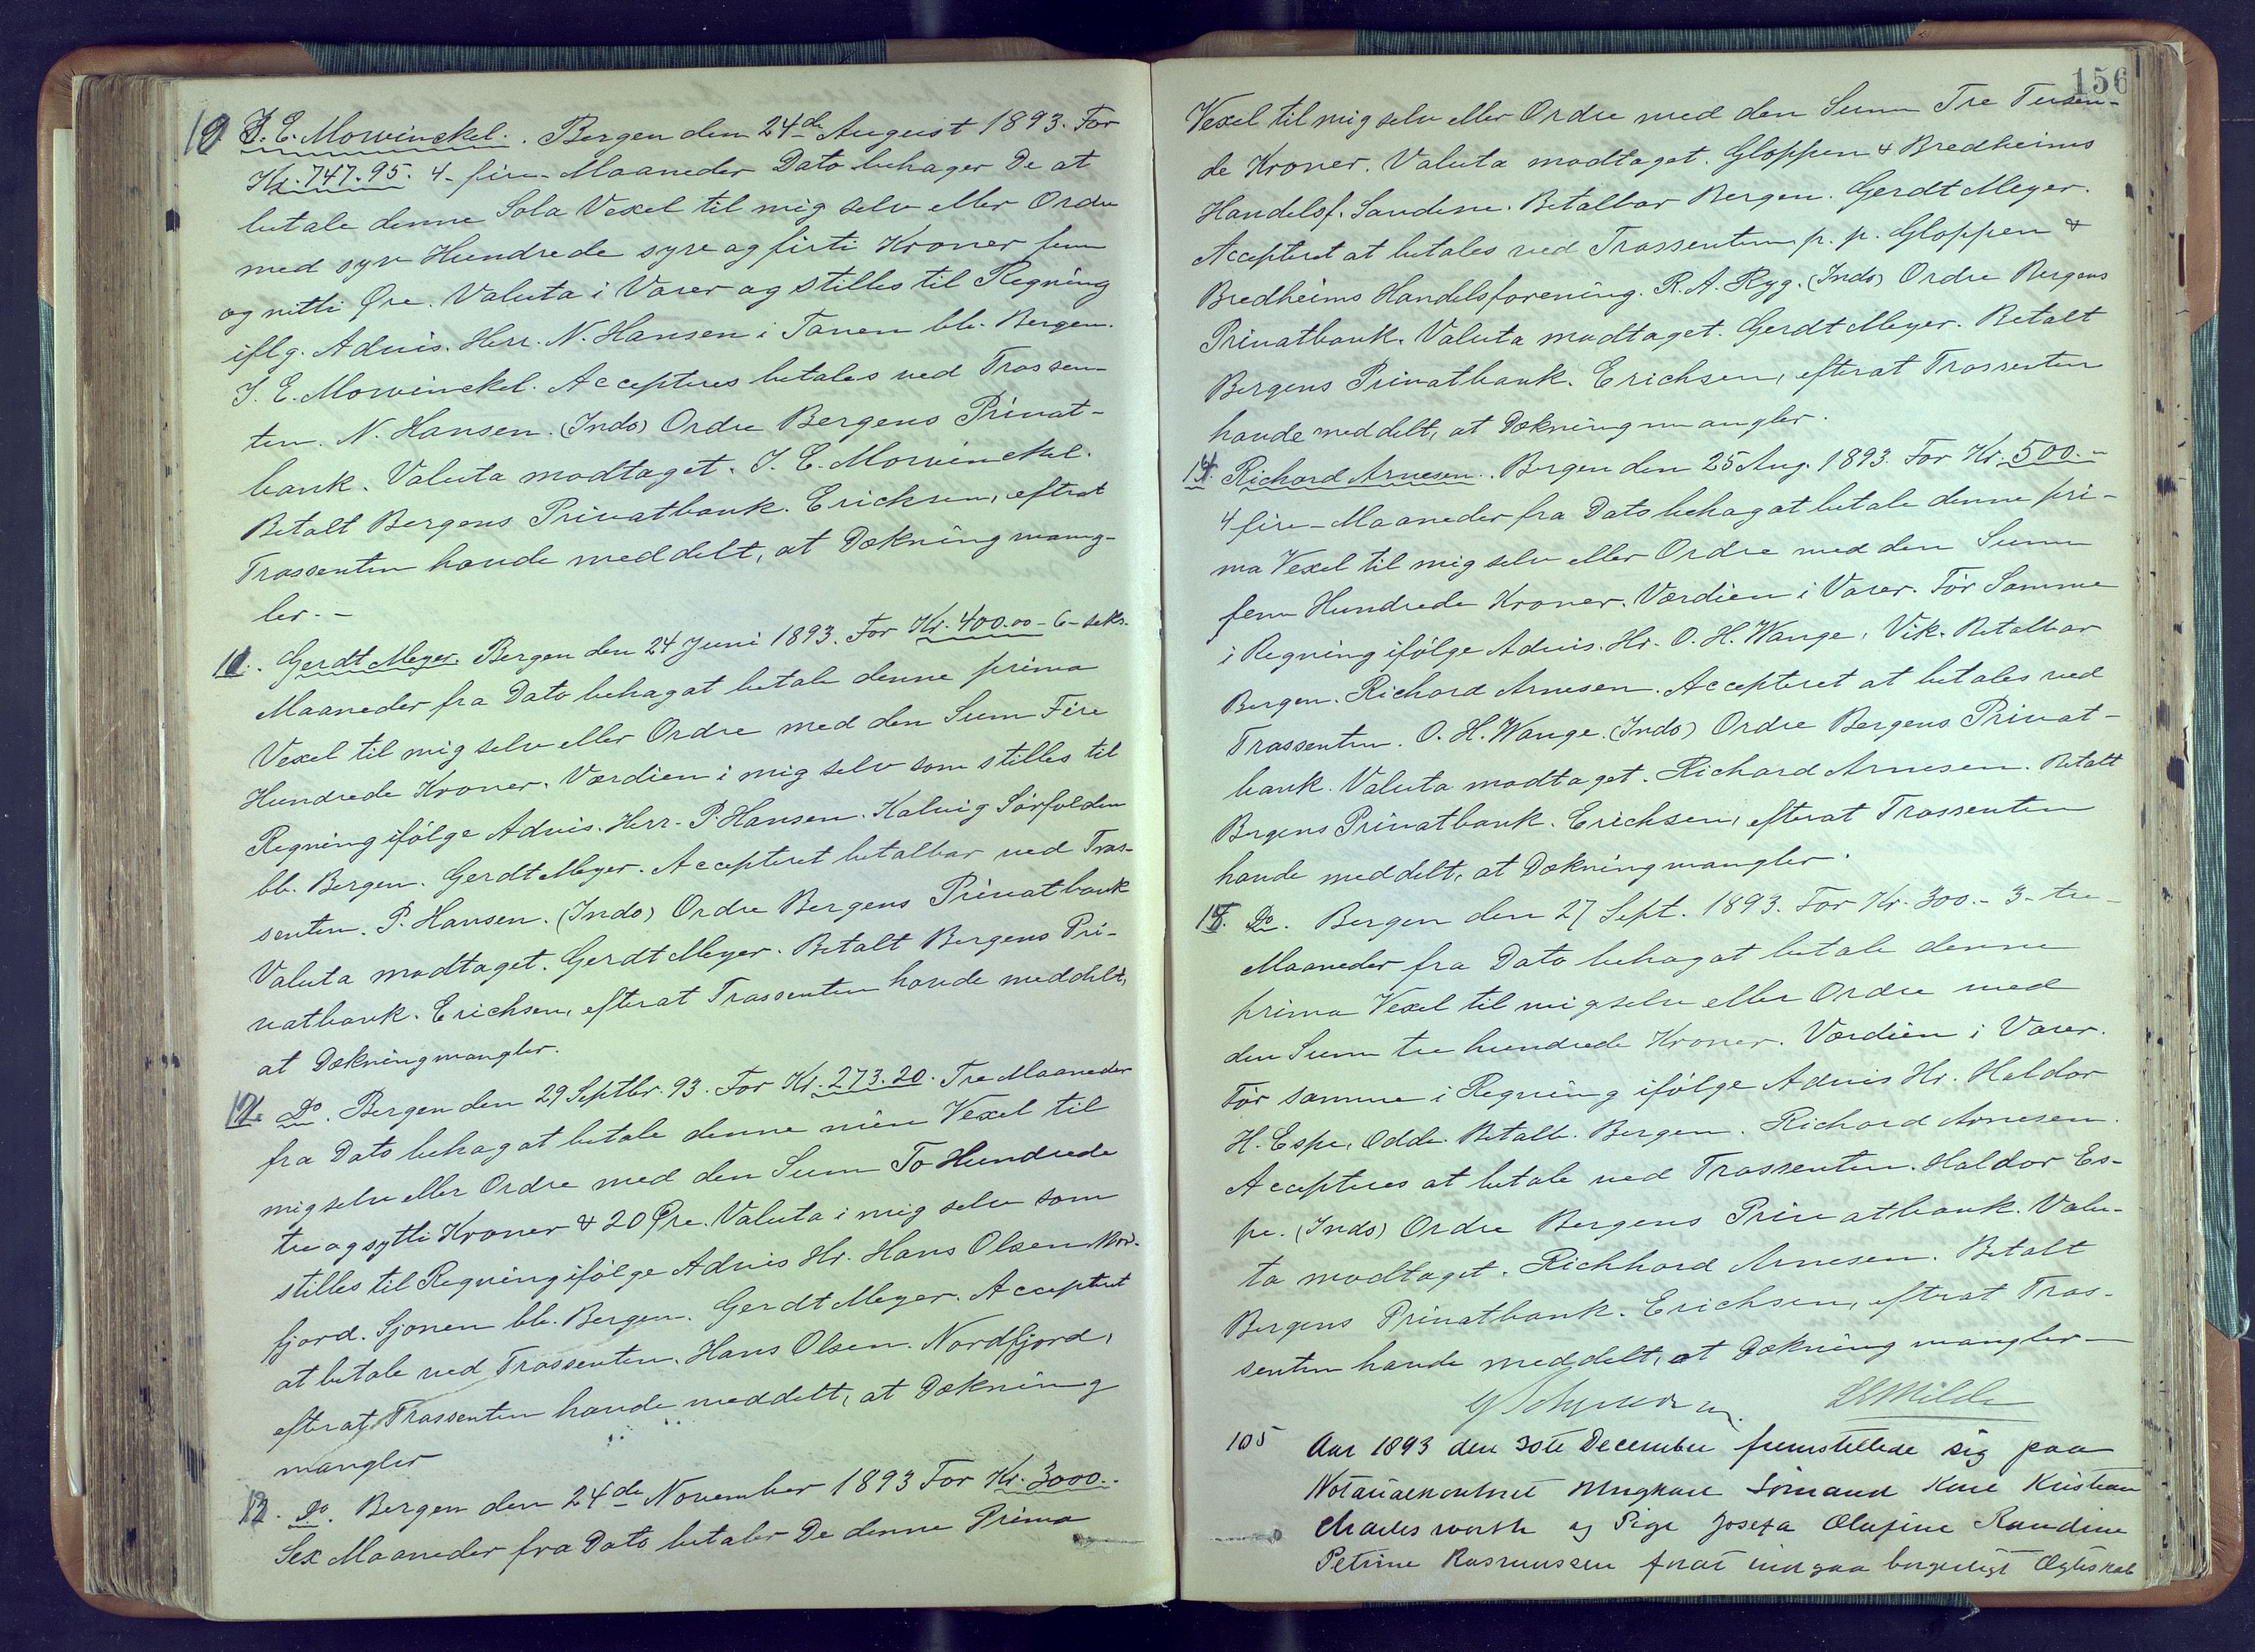 10 J. E. Mowinckel. Bergen den 24de August 1893. For
Kr. 747.95. 4- fire- Maaneder Dato behager De at
betale denne Sola Vexel til mig selv eller Ordre
med syv Hundrede syv og firti Kroner fem
og nitti Øre. Valuta i Varer og stilles til Regning
iflg. Advis. Herr. N. Hansen i Tanem bb. Bergen.
J. E. Mowinckel. Accepteres betales ved Trassen-
ten. N. Hansen. (Indo) Ordre Bergens Privat-
bank. Valuta modtaget. J. E. Mowinckel.
Betalt Bergens Privatbank. Erichsen, efterat
Trassenten havde meddelt, at Dækning mang-
ler. -
11. Gerdt Meyer. Bergen den 24 Juni 1893. For Kr. 400.00 - 6- seks-
Maaneder fra Dato behag at betale denne prima
Vexel til mig selv eller Ordre med den Sum Fire
Hundrede Kroner. Værdien i mig selv som stilles til
Regning ifölge Advis. Herr. P. Hansen. Kalvig Sörfolden
bb. Bergen. Gerdt Meyer. Accepteret betalbar ved Tras-
senten. P. Hansen. (Indo) Ordre Bergens Privatbank
Valuta modtaget. Gerdt Meyer. Betalt Bergens Pri-
vatbank. Erichsen, efterat Trassenten havde meddelt,
at Dækning mangler.
12. Do. Bergen den 29 Septbr. 93. For Kr. 273.20. Tre Maaneder
fra Dato behag at betale denne min Vexel til
mig selv eller Ordre med den Sum To Hundrede
tre og sytti Kroner & 20 Øre. Valuta i mig selv som
stilles til Regning ifölge Advis Hr. Hans Olsen Nor-
fjord. Sjonen bb. Bergen. Gerdt Meyer. Accepteret
at betale ved Trassenten. Hans Olsen. Nordfjord,
efterat Trassenten havde meddelt, at Dækning
mangler
13. Do. Bergen den 24de November 1893 For Kr. 3000..
Sex Maaneder fra Dato betaler De denne Prima
156
Vexel til mig selv eller Ordre med den Sum Tre Tusen-
de Kroner. Valuta modtaget. Gloppen & Bredheims
Handelsf. Sandene. Betalbar Bergen. Gerdt Meyer.
Accepteret at betales ved Trassenten p. p. Gloppen &
Bredheims Handelsforening. R. A. Ryg. (Indo) Ordre Bergens
Privatbank. Valuta modtaget. Gerdt Meyer. Betalt
Bergens Privatbank. Erichsen, efterat Trassenten
havde meddelt, at Dækning mangler.
14. Richard Arnesen. Bergen den 25 Aug. 1893. For Kr. 500.-
4 fire- Maaneder fra Dato behag at betale denne pri-
ma Vexel til mig selv eller Ordre med den Sum
fem Hundrede Kroner. Værdien i Varer. För Samme
i Regning ifölge Advis. Hr. O. H. Wange, Vik. Betalbar
Bergen. Richard Arnesen. Accepteret at betales ved
Trassenten. O. H. Wange. (Indo) Ordre Bergens Privat-
bank. Valuta modtaget. Richard Arnesen. Betalt
Bergens Privatbank. Erichsen, efterat Trassenten
havde meddelt, at Dækning mangler.
15. Do. Bergen den 27 Sept. 1893. For Kr. 300.- 3- tre-
Maaneder fra Dato behag at betale denne
prima Vexel til mig selv eller Ordre med
den Sum tre hundrede Kroner. Værdien i Varer.
För samme i Regning ifölge Advis Hr. Haldor
H. Espe, Odde. Betalb. Bergen. Richard Arnesen.
Accepteres at betale ved Trassenten. Haldor Es-
pe. (Indo) Ordre Bergens Privatbank. Valu-
ta modtaget. Richhard Arnesen. Betalt
Bergens Privatbank. Erichsen, efterat Tras-
senten havde meddelt, at Dækning mangler -
Milde
105 Aar 1893 den 30te December fremstillede sig paa
Notarialkontoret Ungkarl Sömand Karl Kristian
Charlesworth og Pige Josefa Olufine Randine
Petrine Rasmussen for at indgaa borgerligt Ægteskab